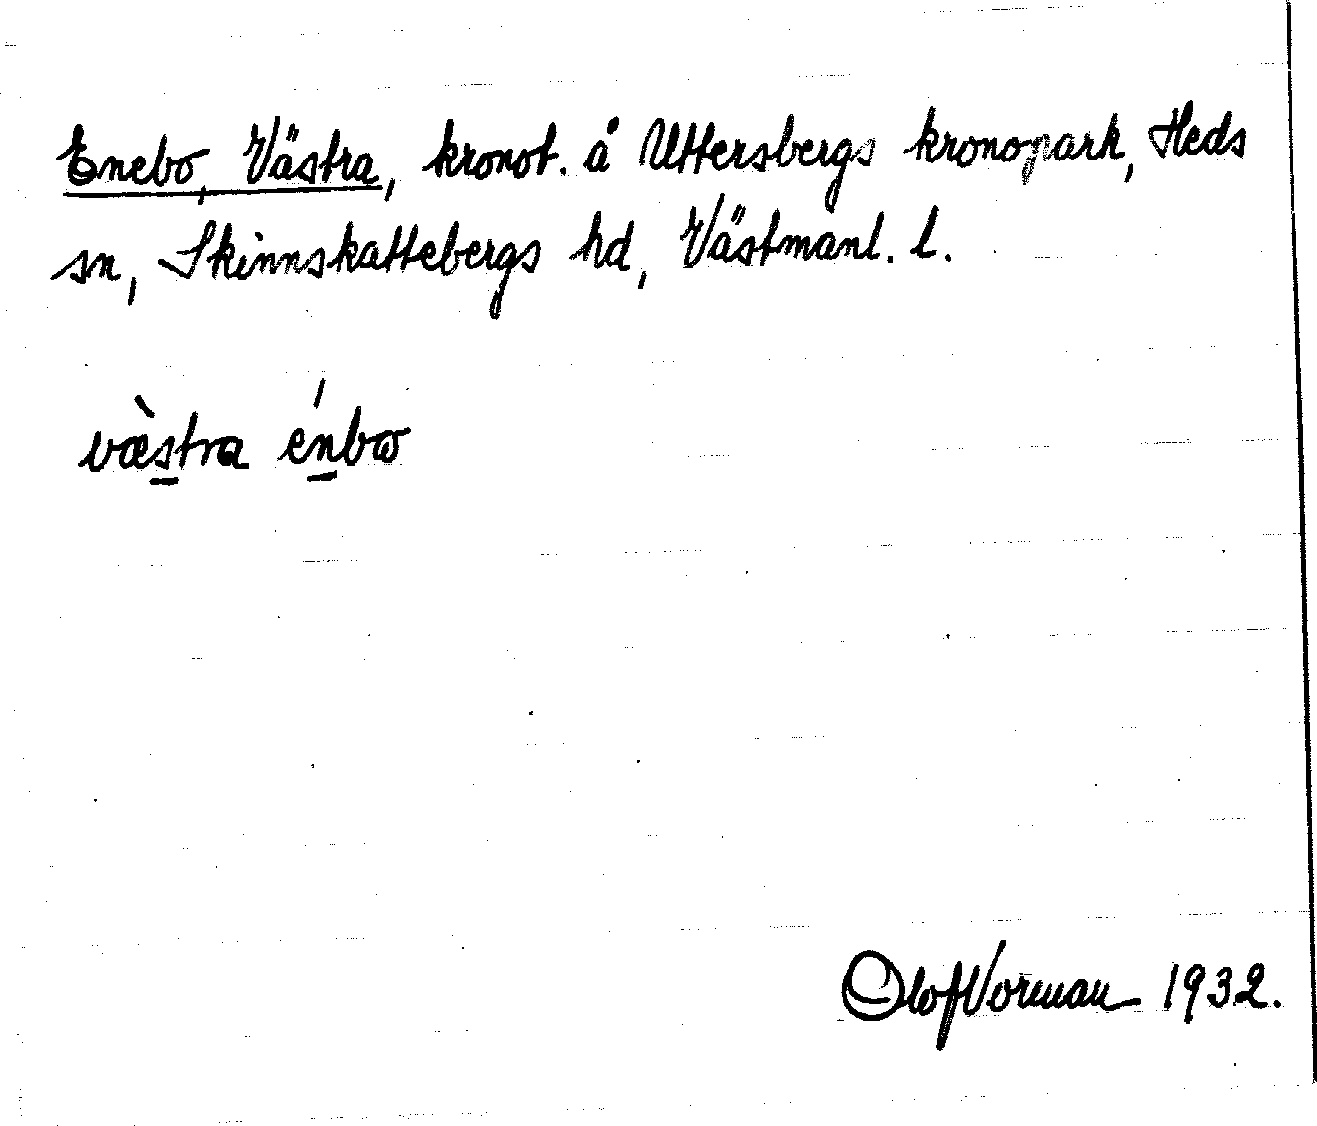 Enebo, Västra, kronot. å Uttersbergs kronopark, Heds
sn, Skinnskattebergs hd, Västmanl. l.
væ̀stra énbω
Olof Norman 1932.